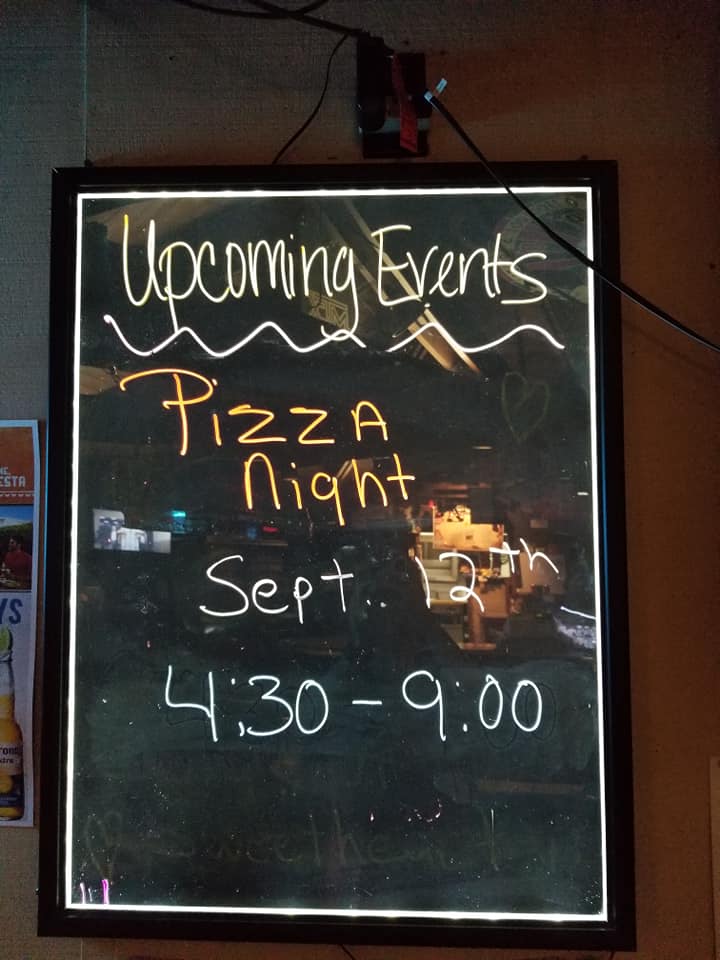 Upcoming Events
Pizza
Night
Sept. 12th
4:30 - 9:00
ESTA
YS